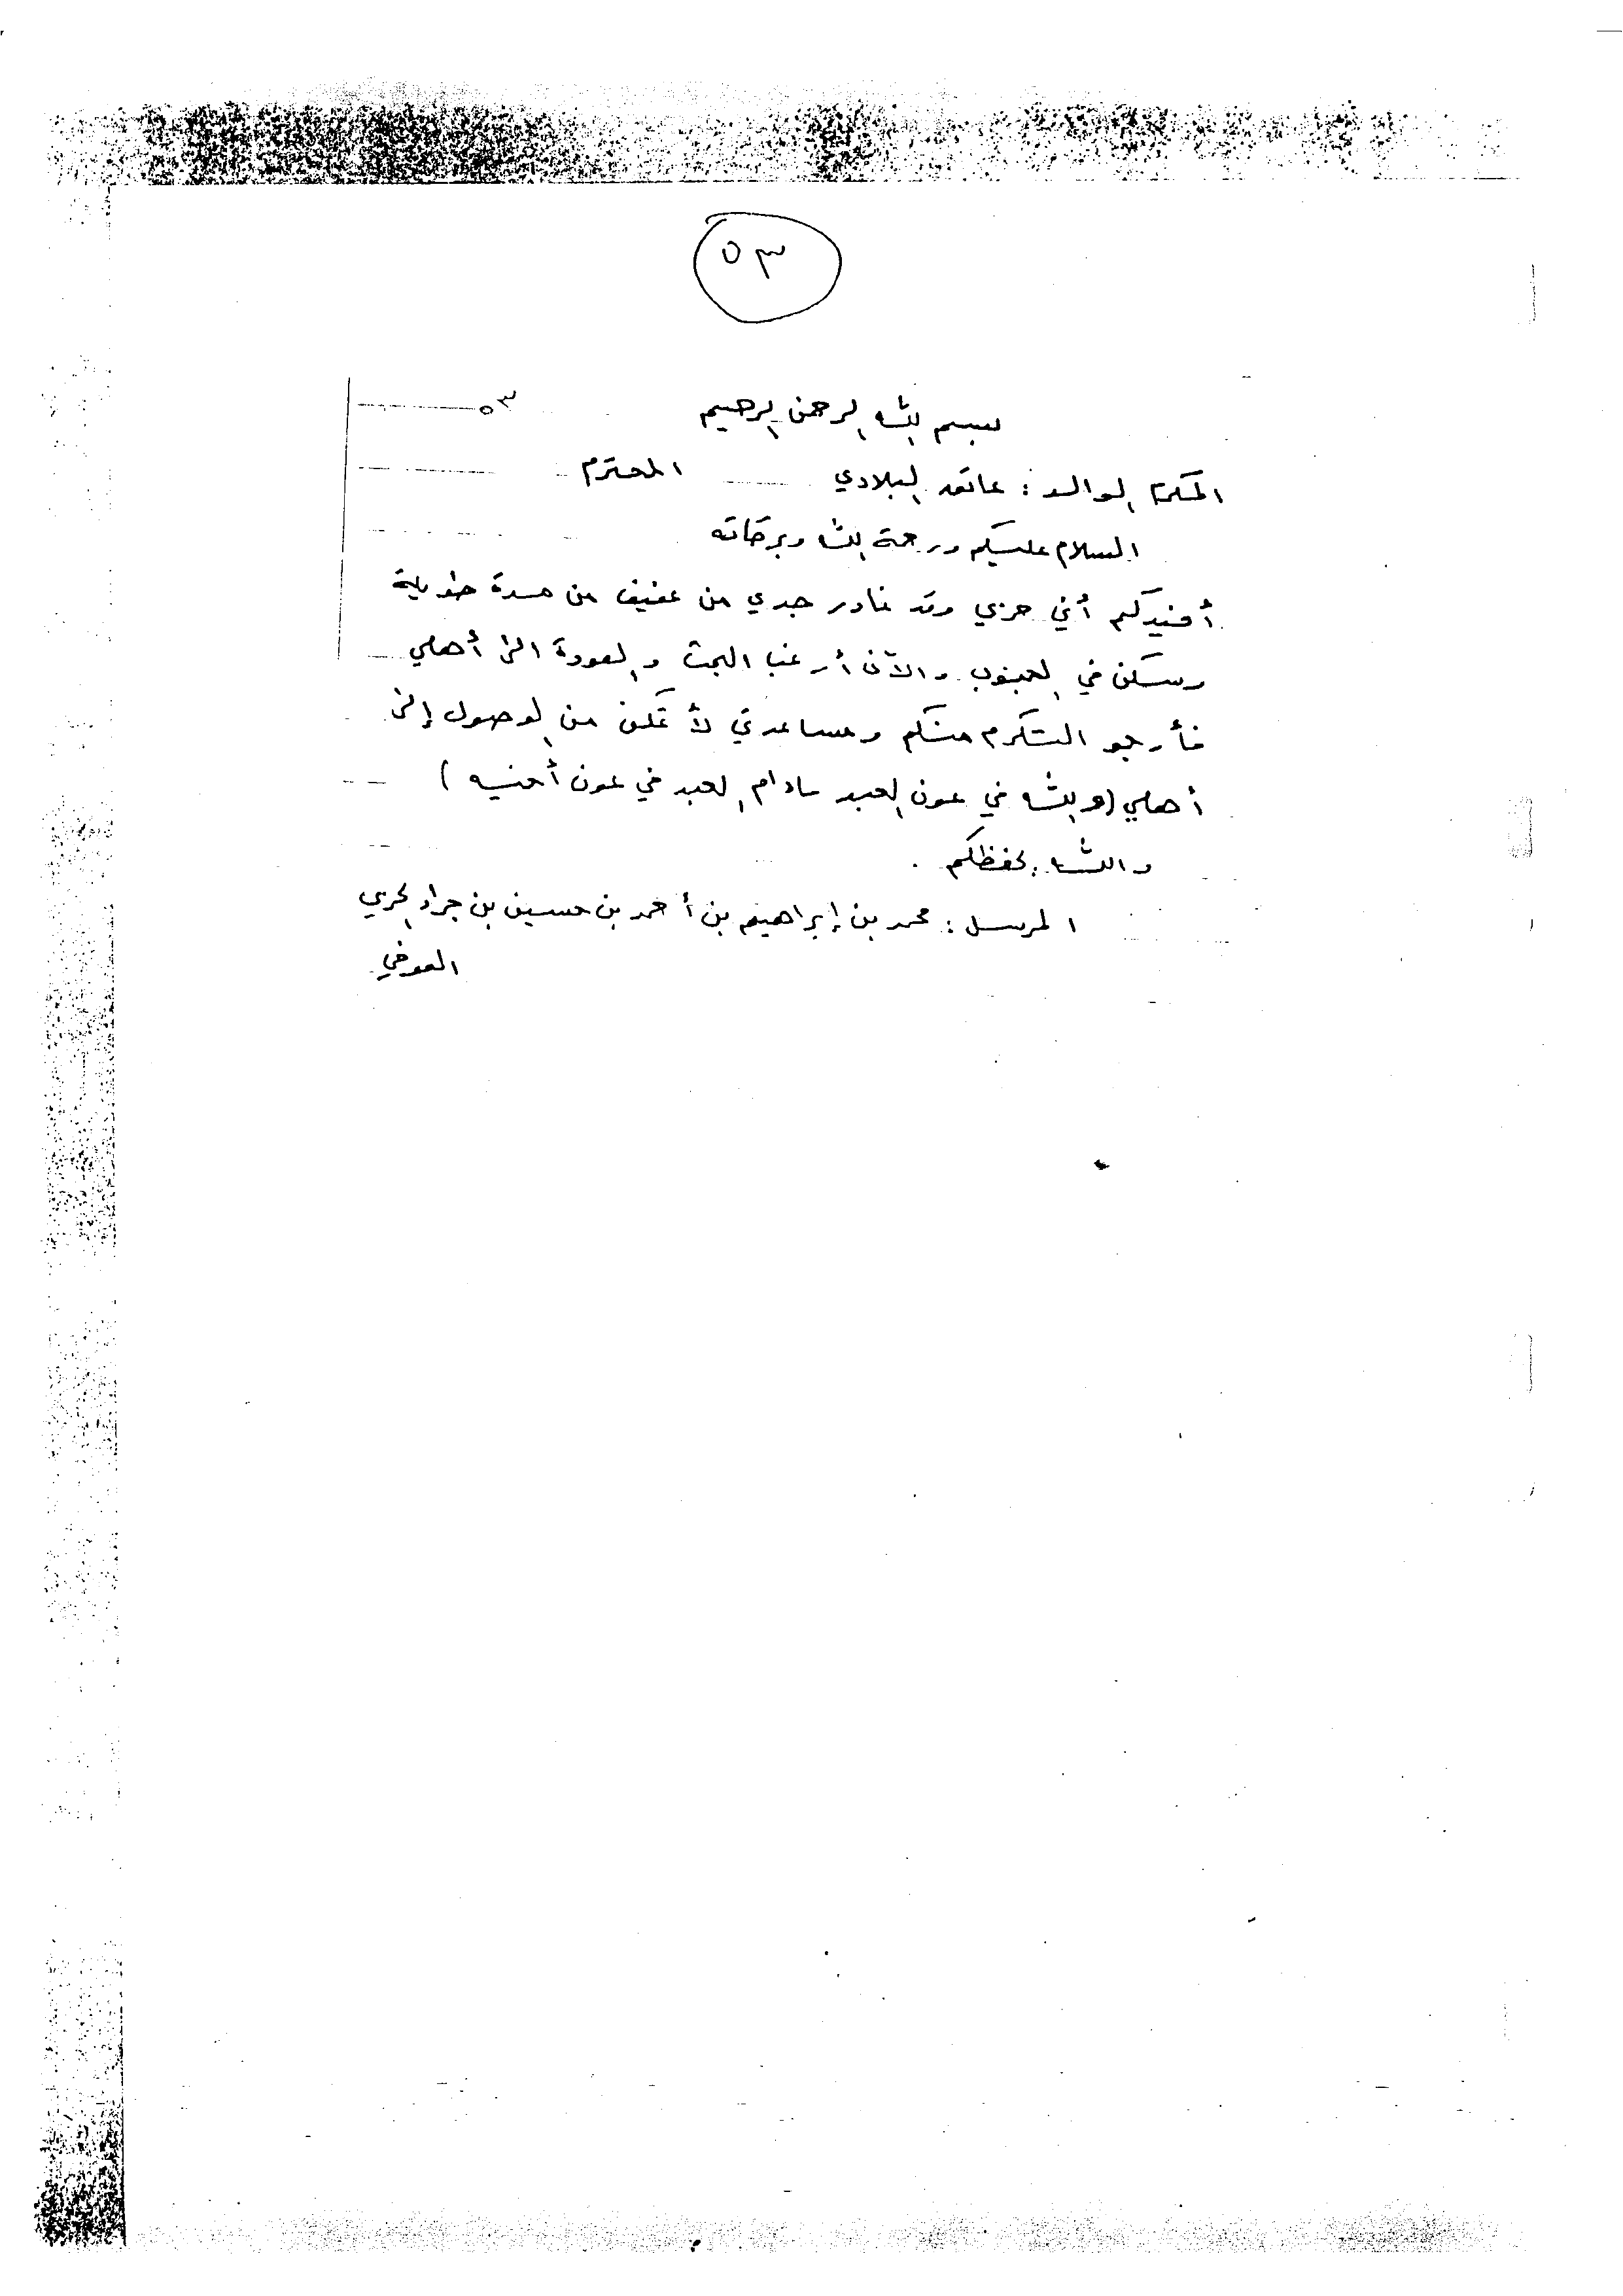 ٥٣
٥٣
بسم الله الرحمن الرحيم
المكرم الوالد : عاتق البلادي المحترم
السلام عليكم ورحمة الله وبركاته
أفيدكم أني حربي وقد غادر جدي من عفيف من مدة طويلة
وسكن في الجنوب والآن أرغب البحث والعودة الى أهلي
فأرجو التكرم منكم ومساعدتي لأتمكن من الوصول إلى
أهلي (والله في عون العبد مادام العبد في عون أخيه)
والله يحفظكم .
المرسل : محمد بن إبراهيم بن أحمد بن حسين بن جراد الحربي
العوفي